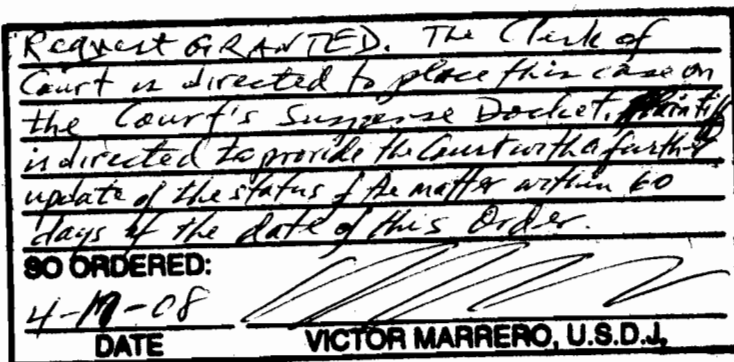 Request GRANTED. The Clerk of
Court is directed to place this case on
the Court's Suspense Docket. Plaintiff
is directed to provide the Court with a further
update of the status of the matter within 60
days of the date of this Order.
SO ORDERED:
DATE
VICTOR MARRERO, U.S.D.J.